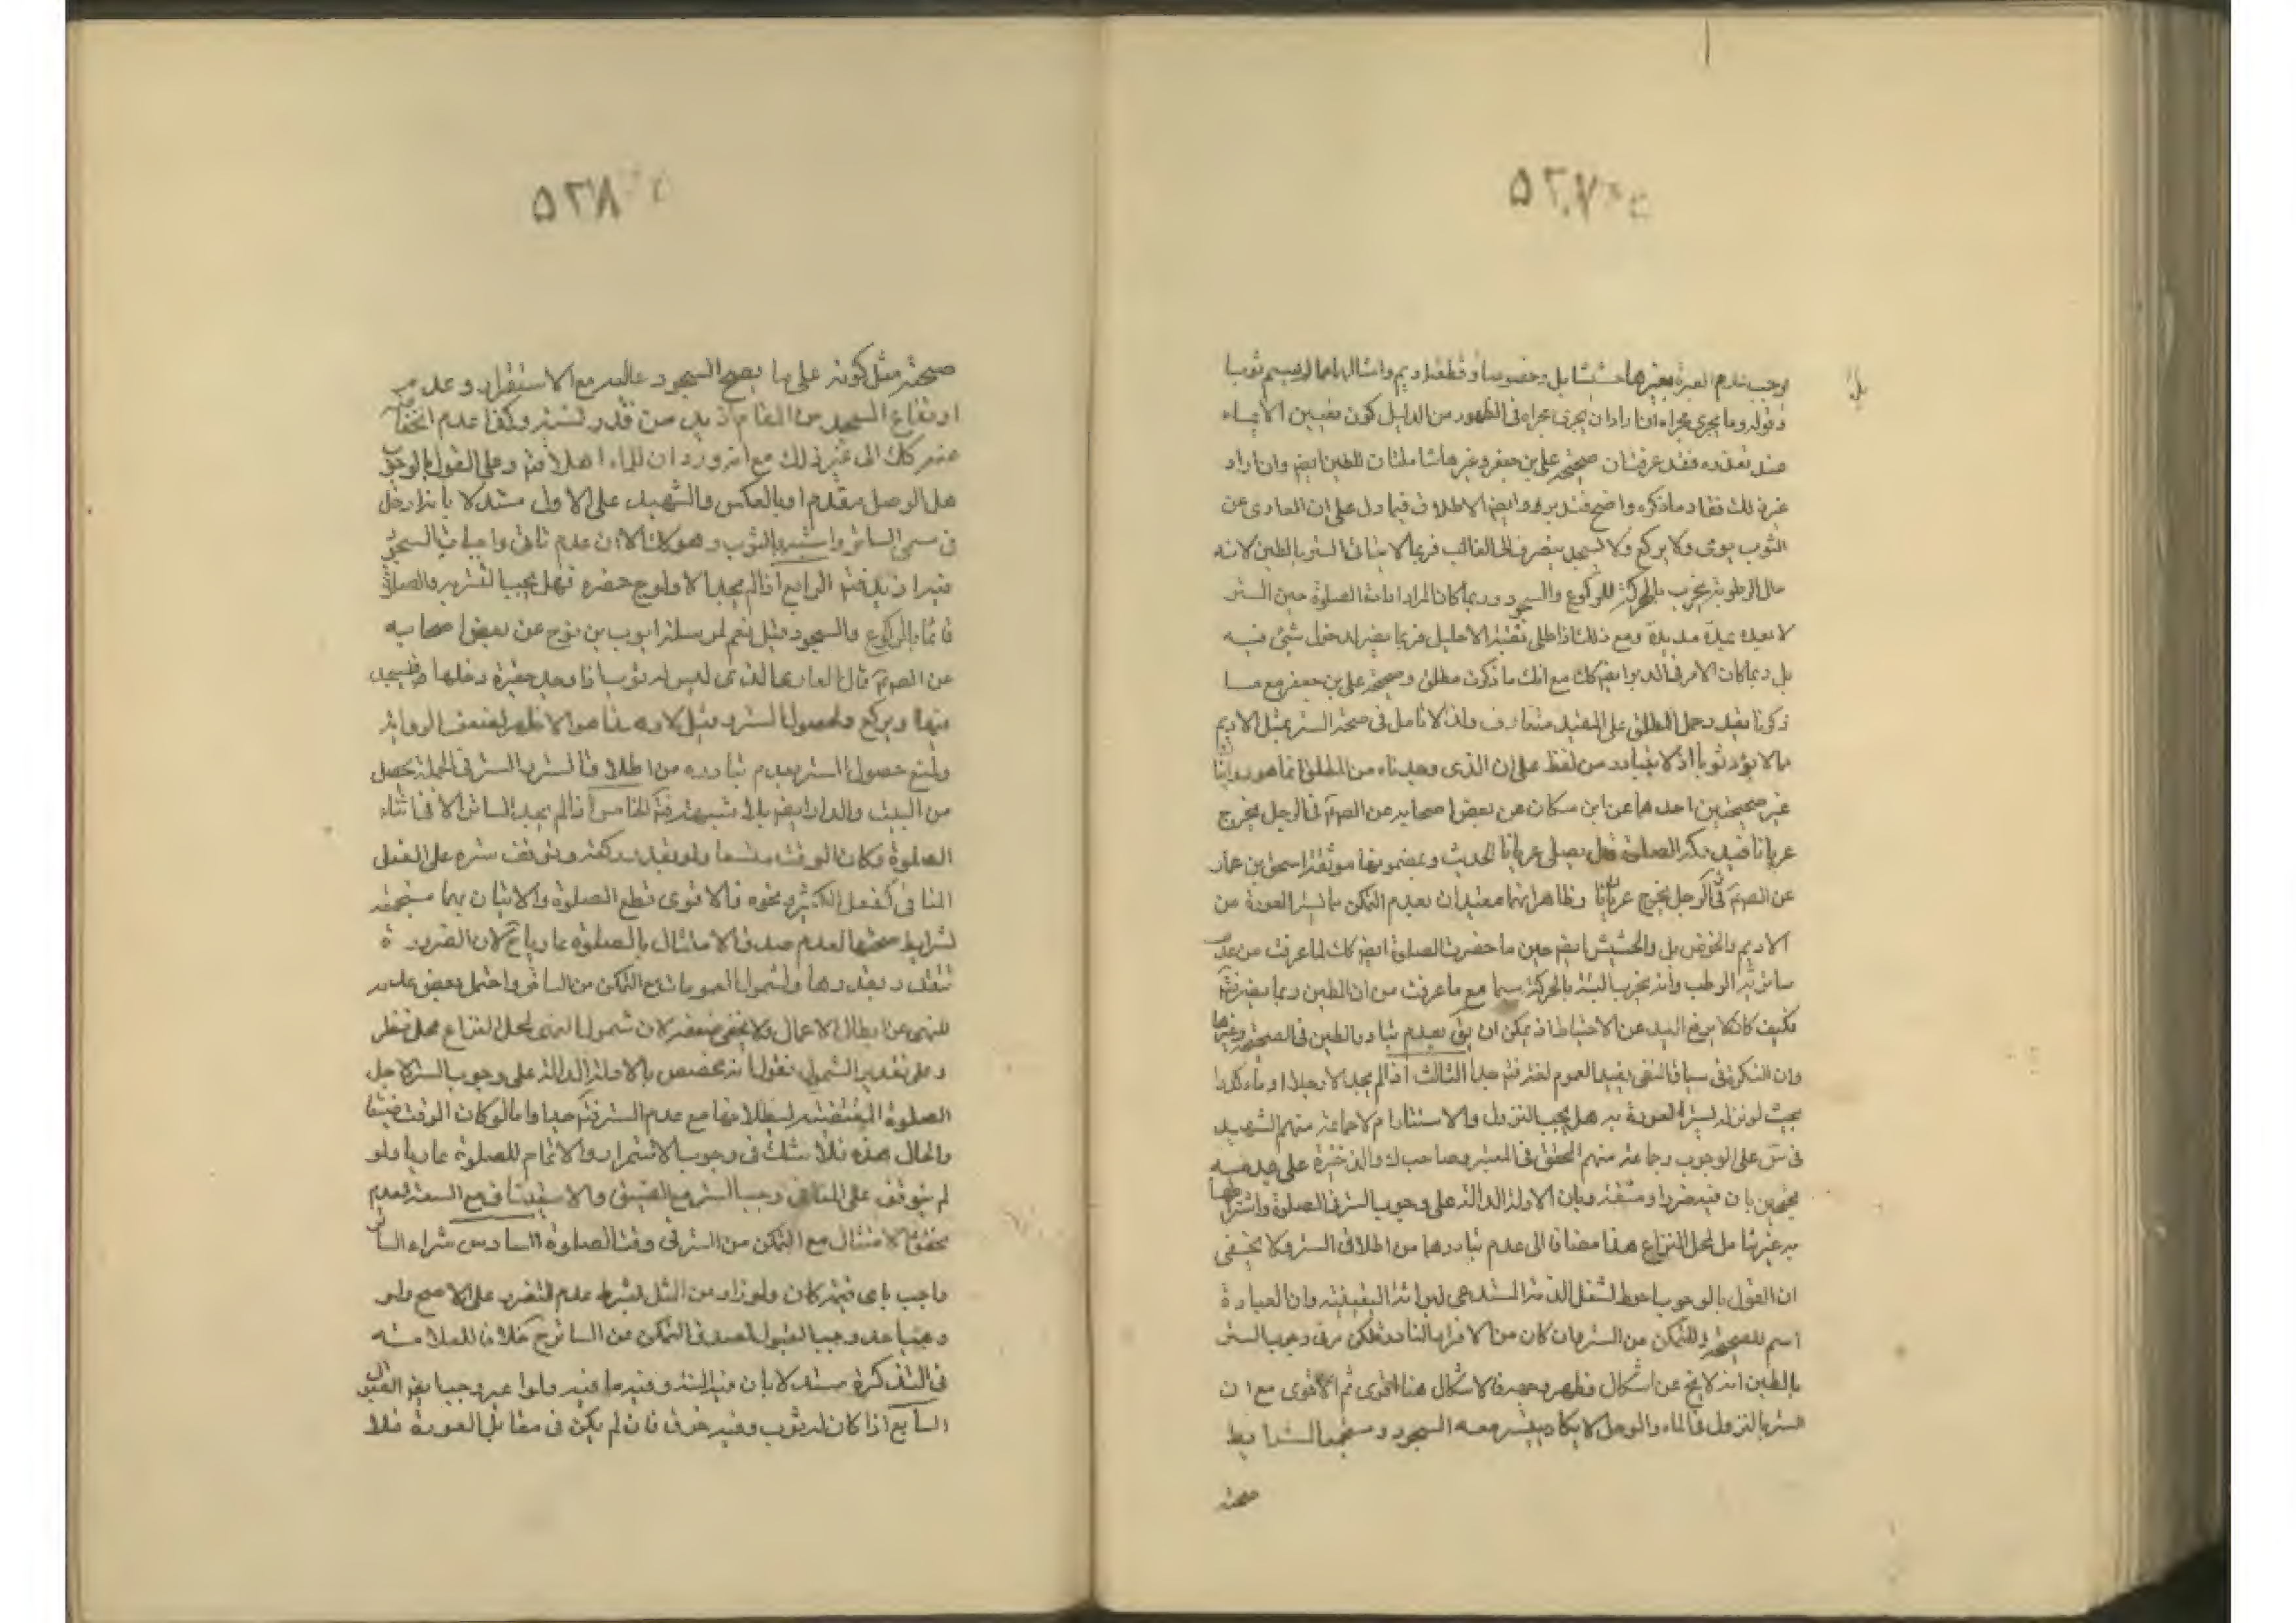 ۵۲۷
لوجب عدم العبرة بغيرها حشيشا بل وخوصا وقطعة اديم وامثالها مما لا يسمى ثوبا
وقوله وما يجرى مجراه ان اراد ان يجرى مجراه فى الظهور من الدليل كون تعيين الايماء
عند تعذره فقد عرفت ان صحيحة على بن جعفر وغيرها شاملتان للطين ايضا وان اراد
غير ذلك ففساد ما ذكره واضح فتدبر وايضا الاطلاق فيما دل على ان العارى عن
الثوب يومى ولا يركع ولا يسجد ينصرف الى الغالب فربما لا ينافى الستر بالطين لانه
حال الرطوبة يخرب بالحركة للركوع والسجود وربما كان المراد اقامة الصلوة حين الستر
لا بعده بمدة مديدة ومع ذلك اذا طلى ثقبة الاحليل فربما يضر لدخول شئ فيه
بل ربما كان الامر فى الدبر ايضا كك مع ان ما ذكرت مطلق وصحيحة على بن جعفر مع ما
ذكرنا مقيد وحمل المطلق على المقيد متعارف ولذا لا تامل فى صحة الستر بمثل الاديم
مما لا يعد ثوبا اذ لا يتبادر من لفظ على ان الذى وجدناه من المطلق انما هو روايتان
غير صحيحتين احدهما عن ابن مسكان عن بعض اصحابه عن الصم فى الرجل يخرج
عريانا فيدركه الصلوة قال يصلى عريانا الحديث وبمضمونها موثقة اسحق بن عمار
عن الصم فى الرجل يخرج عريانا وظاهر انهما مقيدان بعدم التمكن بما يستر العورة من
الاديم والخوص بل والحشيش ايضا حين ما حضرت الصلوة ايضا كك لما عرفت من عدم
ساترية الرطب وانه يخرب البتة بالحركة سيما مع ما عرفت من ان الطين ربما يضر فتم
فكيف كان لا يرفع اليد عن الاحتياط اذ يمكن ان يق بعدم تبادر الطين فى الصحيحة وغيرها
وان النكرة فى سياق النفى يفيد العموم لغة فتم جدا الثالث اذا لم يجد الا وحلا او ماء كدرا
بحيث لو نزله لستر العورة به هل يجب النزول والاستتار ام لا جماعة منهم الشهيد
فى س على الوجوب وجماعة منهم المحقق فى المعتبر وصاحب ك والذخيرة على عدمه
محتجين بان فيه ضررا ومشقة وبان الادلة الدالة على وجوب الستر فى الصلوة واشتراطها
به غير شامل لمحل النزاع هذا مضافا الى عدم تبادرهما من اطلاق الستر ولا يخفى
ان القول بالوجوب احوط لشغل الذمة المستدعى لبرائة اليقينية وان العبادة
اسم للصحيحة وللتمكن من الستر وان كان من الافراد النادرة ولكن مر فى وجوب الستر
بالطين انه لا يخ عن اشكال فظهر وجهه فالاشكال هنا اقوى ثم الاقوى مع ان
الستر بالنزول فى الماء والوحل لا يكاد يتيسر معه السجود ومستجمعا لشرايط
صحته
۵۲۸
صحته مثل كونه على ما يصح السجود عاليه مع الاستقرار وعدم
ارتفاع المسجد من المقام ازيد من قدر لبنة وكذا عدم انخفاضه
عنه كك الى غير ذلك مع انه ورد ان للماء اهلا فتم وعلى القول بالوجوب
هل الوحل مقدم او بالعكس والشهيد على الاول مستدلا بانه ادخل
فى مسمى الساتر واشبه بالثوب وهو كك الا ان عدم تاتى واجبات السجود
فيه ازيد فتم الرابع اذا لم يجد الا ولوج حفرة فهل يجب التستر به والصلوة
قائما بالركوع والسجود قيل نعم لمرسلة ايوب بن نوح عن بعض اصحابه
عن الصم قال العارى الذى ليس له ثوب اذا وجد حفيرة دخلها فيسجد
فيها ويركع ولحصول الستر وقيل لا وهذا هو الاظهر لضعف الرواية
ولمنع حصول الستر بعدم تبادره من اطلاقات الستر والستر فى الجملة يحصل
من البيت والدار ايضا بلا شبهة فتم الخامس اذا لم يجد الساتر الا فى اثناء
الصلوة فكان الوقت متسعا ولو بقدر ركعة وتوقف ستره على الفعل
المنافى كفعل الكثير ونحوه فالاقوى قطع الصلوة والاتيان بها مستجمعة
لشرايط صحتها لعدم صدق الامتثال بالصلوة عاريا ح لان الضرورة
تتقدر بقدرها ولشمول العمومات مع التمكن من الساتر واحتمل بعض عدمه
للنهى عن ابطال الاعمال ولا يخفى ضعفه لان شمول النهى لمحل النزاع محل نظر
وعلى تقدير الشمول نقول انه مخصص بالادلة الدالة على وجوب الستر لاجل
الصلوة المقتضية لبطلانها مع عدم الستر فتم جدا واما لو كان الوقت ضيقا
والحال هذه فلا شك فى وجوب الاستمرار والاتمام للصلوة عاريا ولو
لم يتوقف على المنافى وجب الستر مع الضيق والاستيناف مع السعة لعدم
تحقق الامتثال مع التمكن من الستر فى وقت الصلوة السادس شراء الساتر
واجب باى قيمة كان ولو زاد عن المثل بشرط عدم التضرر على الاصح ولو
وهب احد وجب القبول لصدق التمكن من الساتر ح خلافا للعلامة
فى التذكرة مستدلا بان فيه المنة وفيه ما فيه ولو اعير وجب ايضا القبول
السابع اذا كان له ثوب وفيه خرق فان لم يكن فى مقابل العورة فلا